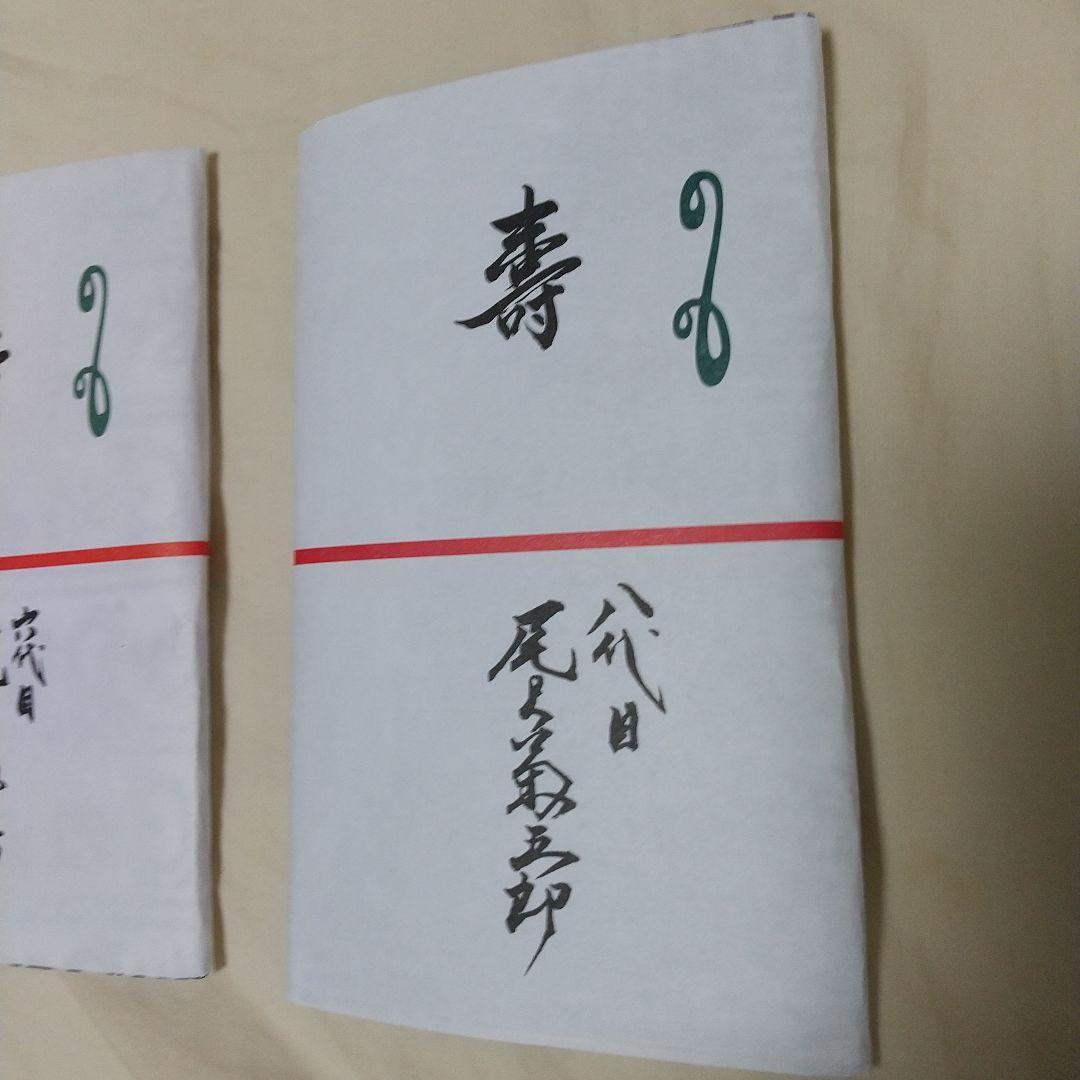 壽
八代目
尾上菊五郎
六代目